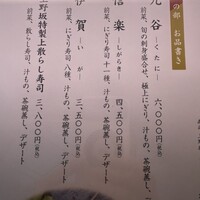 の部 お品書き
九谷 ―くたに― 六、〇〇〇円(税込)
前菜、旬の刺身盛合せ、極上にぎり、汁もの、茶碗
信楽 ―しがらき― 四、五〇〇円(税込)
前菜、にぎり寿司十一種、汁もの、茶碗蒸し、デザ
伊賀 ―いが― 三、五〇〇円(税込)
前菜、にぎり寿司八種、汁もの、茶碗蒸し、デザート
上野坂特製上散らし寿司 三、八〇〇円(税込)
前菜、散らし寿司、汁もの、茶碗蒸し、デザート